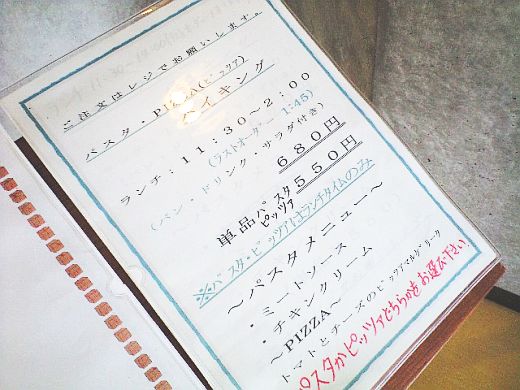 ご注文はレジでお願いします。
パスタ・PIZZA(ピッツア)
バイキング
ランチ：11：30～2：00
(ラストオーダー 1:45)
(パン・ドリンク・サラダ付き)
680円
単品 パスタ ピッツア 550円
※パスタ・ピッツアはランチタイムのみ
～パスタメニュー～
・ミートソース
・チキンクリーム
～PIZZA～
トマトとチーズのピッツア
パスタかピッツァどちらかをお選び下さい